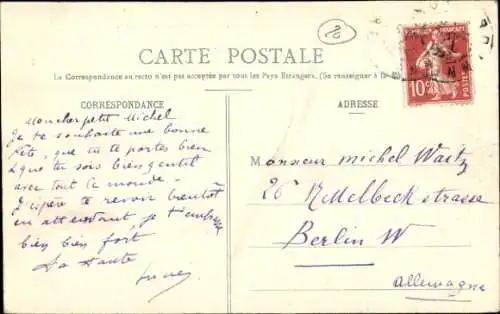 CARTE POSTALE
La Correspondance au recto n'est pas acceptée par tous les Pays Etrangers. (Se renseigner à la
CORRESPONDANCE
Mon cher petit Michel
Je te souhaite une bonne
fête, que tu te portes bien
& que tu sois bien gentil
avec tout le monde.
J'espère te revoir bientôt
en attendant, je t'embrasse
bien bien fort
Ta tante
ADRESSE
Monsieur Michel Waitz
26 Nettelbeckstrasse
Berlin W
Allemagne
FRANÇAISE
10c
POSTES